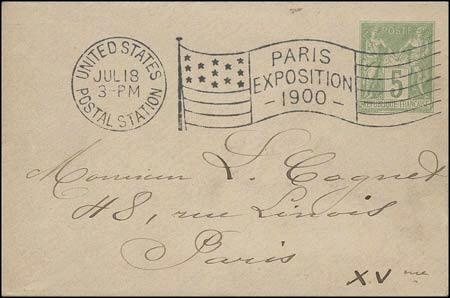 UNITED STATES
JUL 18
3-PM
POSTAL STATION
PARIS
EXPOSITION
- 1900 -
POSTE
5
REPUBLIQUE FRANCAISE
Monsieur L. Cognet
48, rue Linois
Paris
XVme